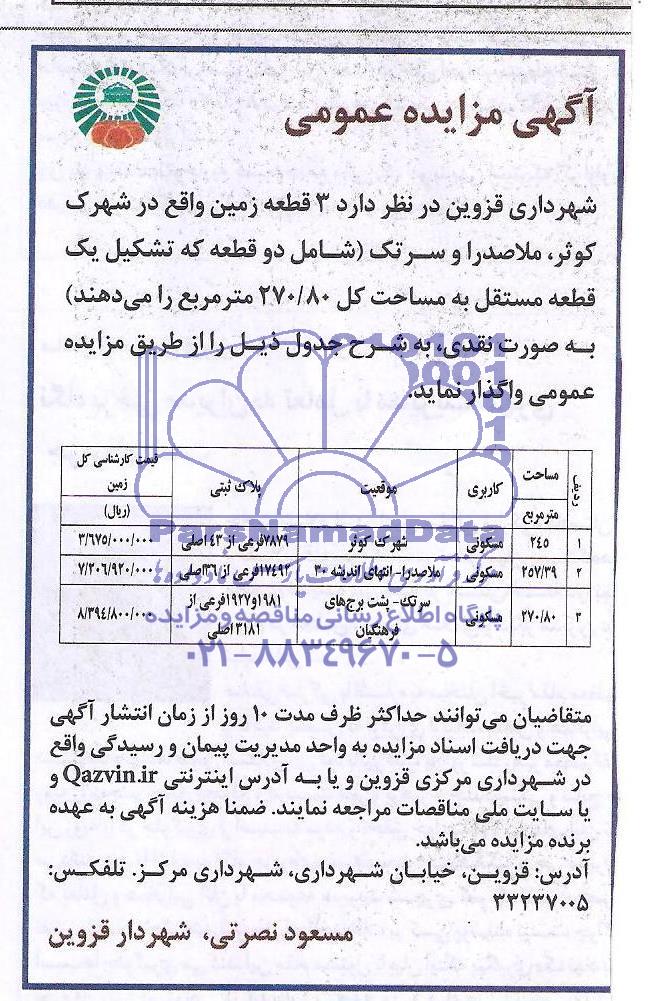 آگهی مزایده عمومی
شهرداری قزوین در نظر دارد ۳ قطعه زمین واقع در شهرک
کوثر، ملاصدرا و سرتک (شامل دو قطعه که تشکیل یک
قطعه مستقل به مساحت کل ۲۷۰/۸۰ مترمربع را می‌دهند)
به صورت نقدی، به شرح جدول ذیل را از طریق مزایده
عمومی واگذار نماید.
ردیف مساحت مترمربع کاربری موقعیت پلاک ثبتی قیمت کارشناسی کل زمین (ریال)
۱ ۲۴۵ مسکونی شهرک کوثر ۷۸۷۹فرعی از ۴۳اصلی ۳/۶۷۵/۰۰۰/۰۰۰
۲ ۲۵۷/۳۹ مسکونی ملاصدرا- انتهای اندیشه ۳۰ ۱۷۴۹۲فرعی از ۳۶اصلی ۷/۲۰۶/۹۲۰/۰۰۰
۳ ۲۷۰/۸۰ مسکونی سرتک- پشت برج‌های فرهنگیان ۱۹۸۱و۱۹۲۷فرعی از ۳۱۸۱اصلی ۸/۳۹۴/۸۰۰/۰۰۰
ParsNamadData
پایگاه اطلاع رسانی مناقصه و مزایده
۰۲۱-۸۸۳۴۹۶۷۰-۵
متقاضیان می‌توانند حداکثر ظرف مدت ۱۰ روز از زمان انتشار آگهی
جهت دریافت اسناد مزایده به واحد مدیریت پیمان و رسیدگی واقع
در شهرداری مرکزی قزوین و یا به آدرس اینترنتی Qazvin.ir و
یا سایت ملی مناقصات مراجعه نمایند. ضمنا هزینه آگهی به عهده
برنده مزایده می‌باشد.
آدرس: قزوین، خیابان شهرداری، شهرداری مرکز. تلفکس:
۳۳۲۳۷۰۰۵
مسعود نصرتی، شهردار قزوین